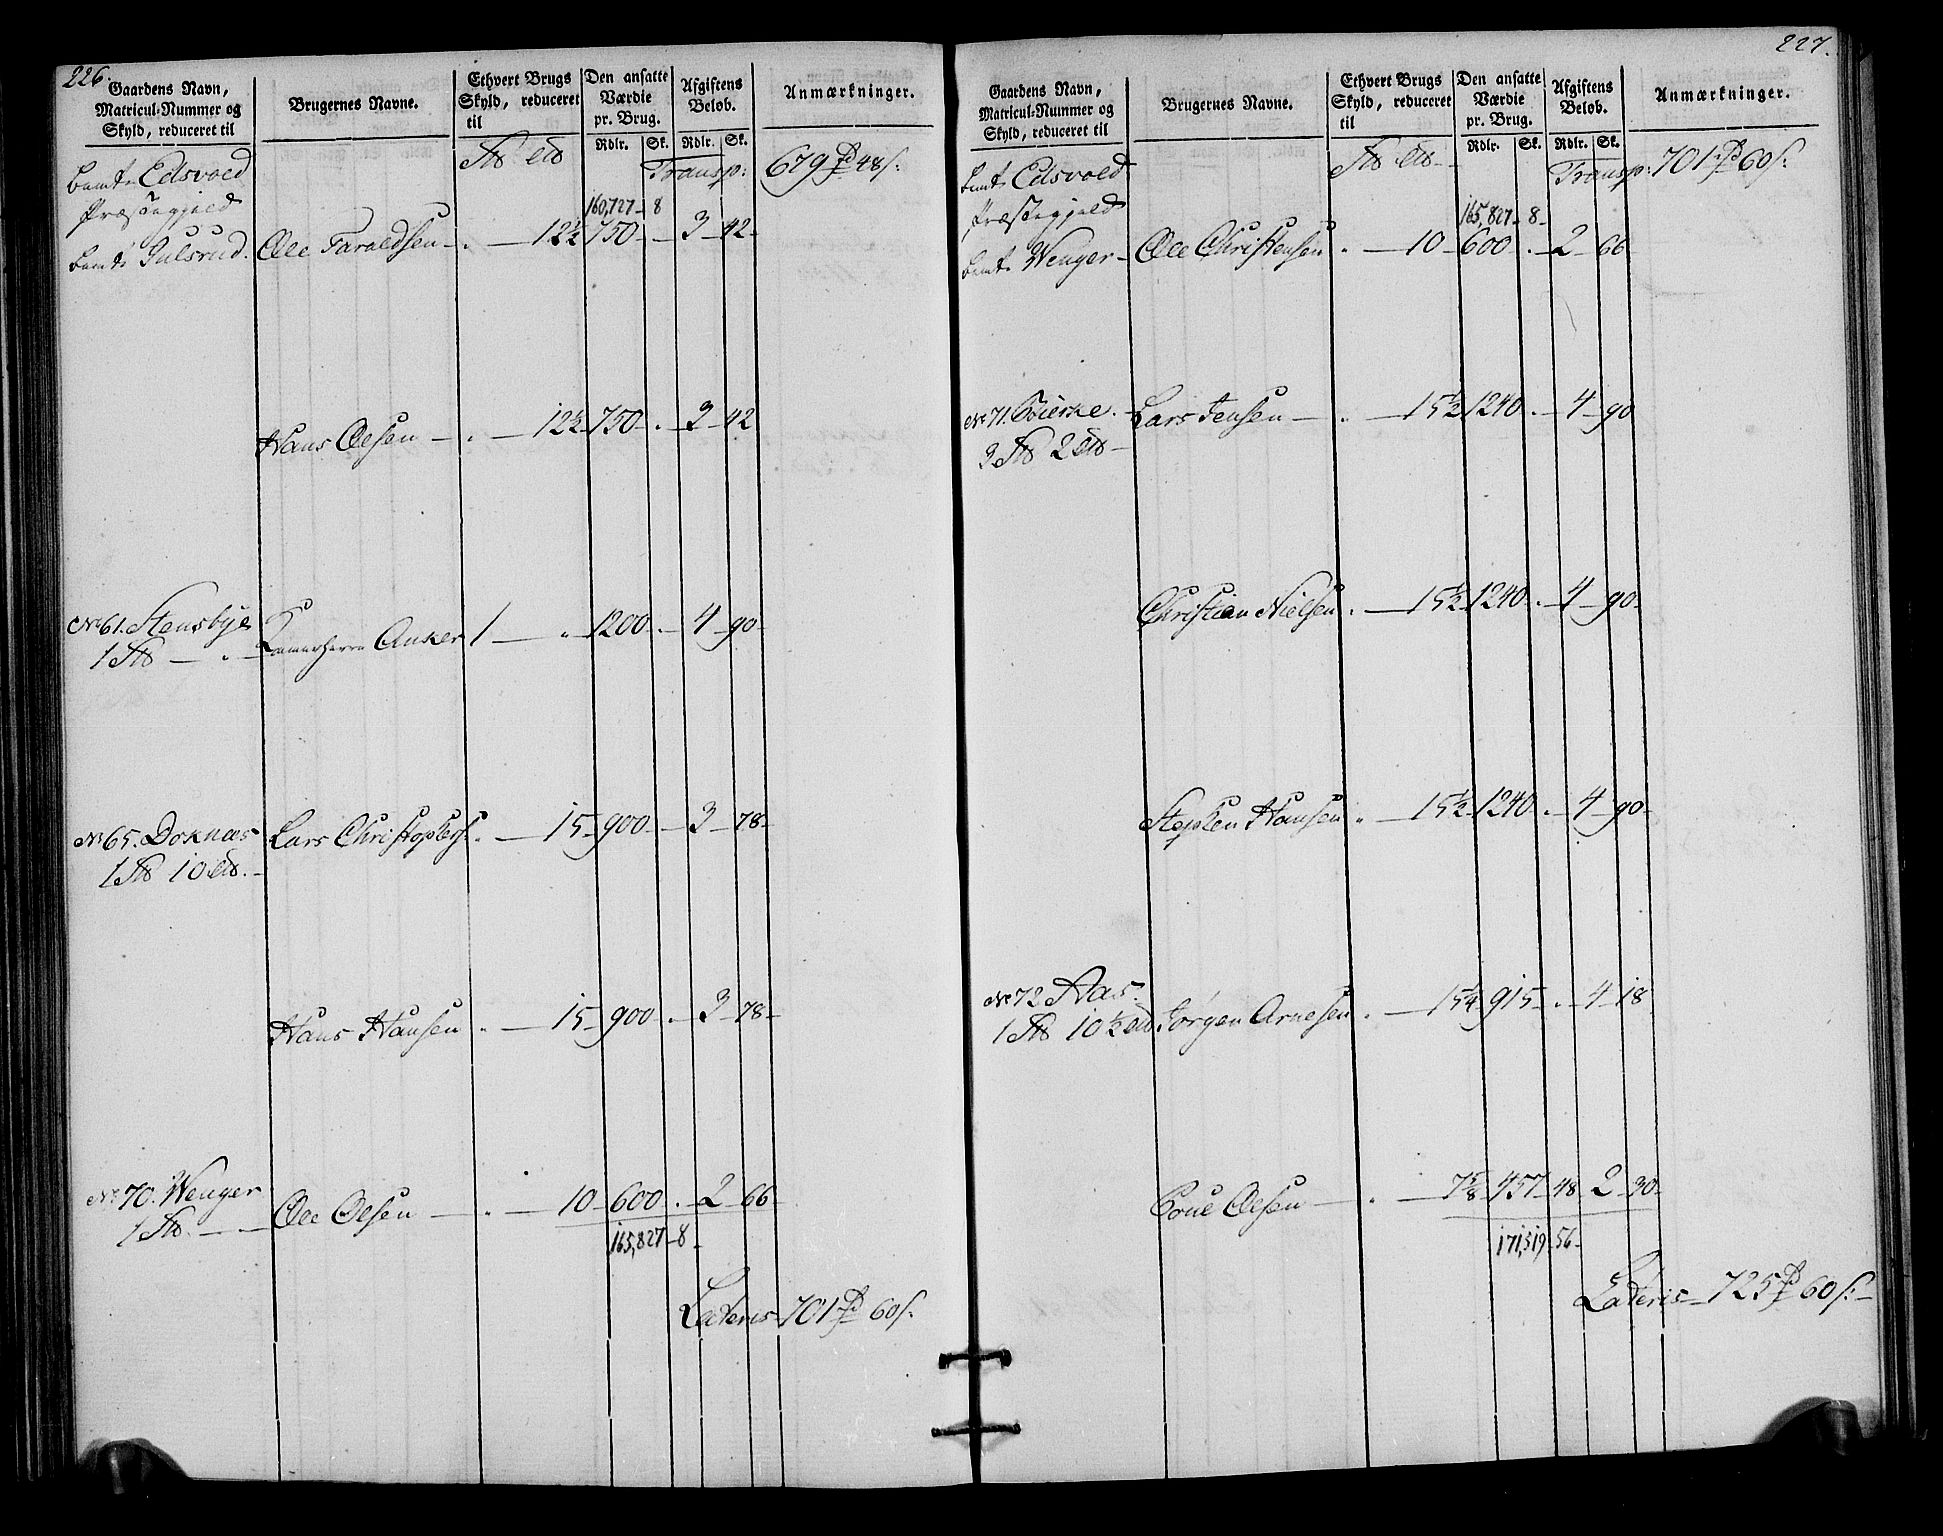 226.
Gaardens Navn,
Matricul-Nummer og
Skyld, reduceret til
Brugernes Navne.
Ethvert Brugs
Skyld, reduceret
til
Den ansatte
Værdie
pr. Brug.
Rdlr. Sk.
Afgiftens
Beløb.
Rdlr. Sk.
Anmærkninger.
bemt. Edsvold
Præstegjeld
Transp: 679 48 s.
160,727 - 8
bemt. Julsrud. Ole Taraldsen - . - 12½ 750 - . - 3 - 42 -
Hans Olsen - . - 12½ 750 - . - 3 - 42
No 61. Stensbye Kammerherre Anker 1 - . 1200 - . - 4 - 90 -
1
No 65. Doknæs Lars Christophers. . - 15 - 900 - . - 3 - 78 -
1 10
Hans Hansen . - 15 - 900 - . - 3 - 78 -
No 70. Wenger Ole Olsen - . - 10 - 600 - . - 2 - 66 -
1
165,827 - 8 -
Lateris 701 60 s.
227.
Gaardens Navn,
Matricul-Nummer og
Skyld, reduceret til
Brugernes Navne.
Ethvert Brugs
Skyld, reduceret
til
Den ansatte
Værdie
pr. Brug.
Rdlr. Sk.
Afgiftens
Beløb.
Rdlr. Sk.
Anmærkninger.
bemt. Edsvold
Præstegjeld
Transp: 701 60 s.
165,827 - 8 -
bemt. Wenger - Ole Christensen . - 10 - 600 - . - 2 - 66
No 71. Bierke. - Lars Jensen - . - 15½ 1240 - . - 4 - 90
3 2
Christian Nielsen . - 15½ 1240 - . - 4 - 90 -
Stephen Hansen . - 15½ 1240 - . - 4 - 90 -
No 72 Aas. Jørgen Arnesen . - 15¼ 915 - . - 4 - 18
1 10½
Poul Olsen - . - 7⅝ 457 - 48 2 - 30 -
171,519 - 56 -
Lateris - 725 60 s. -